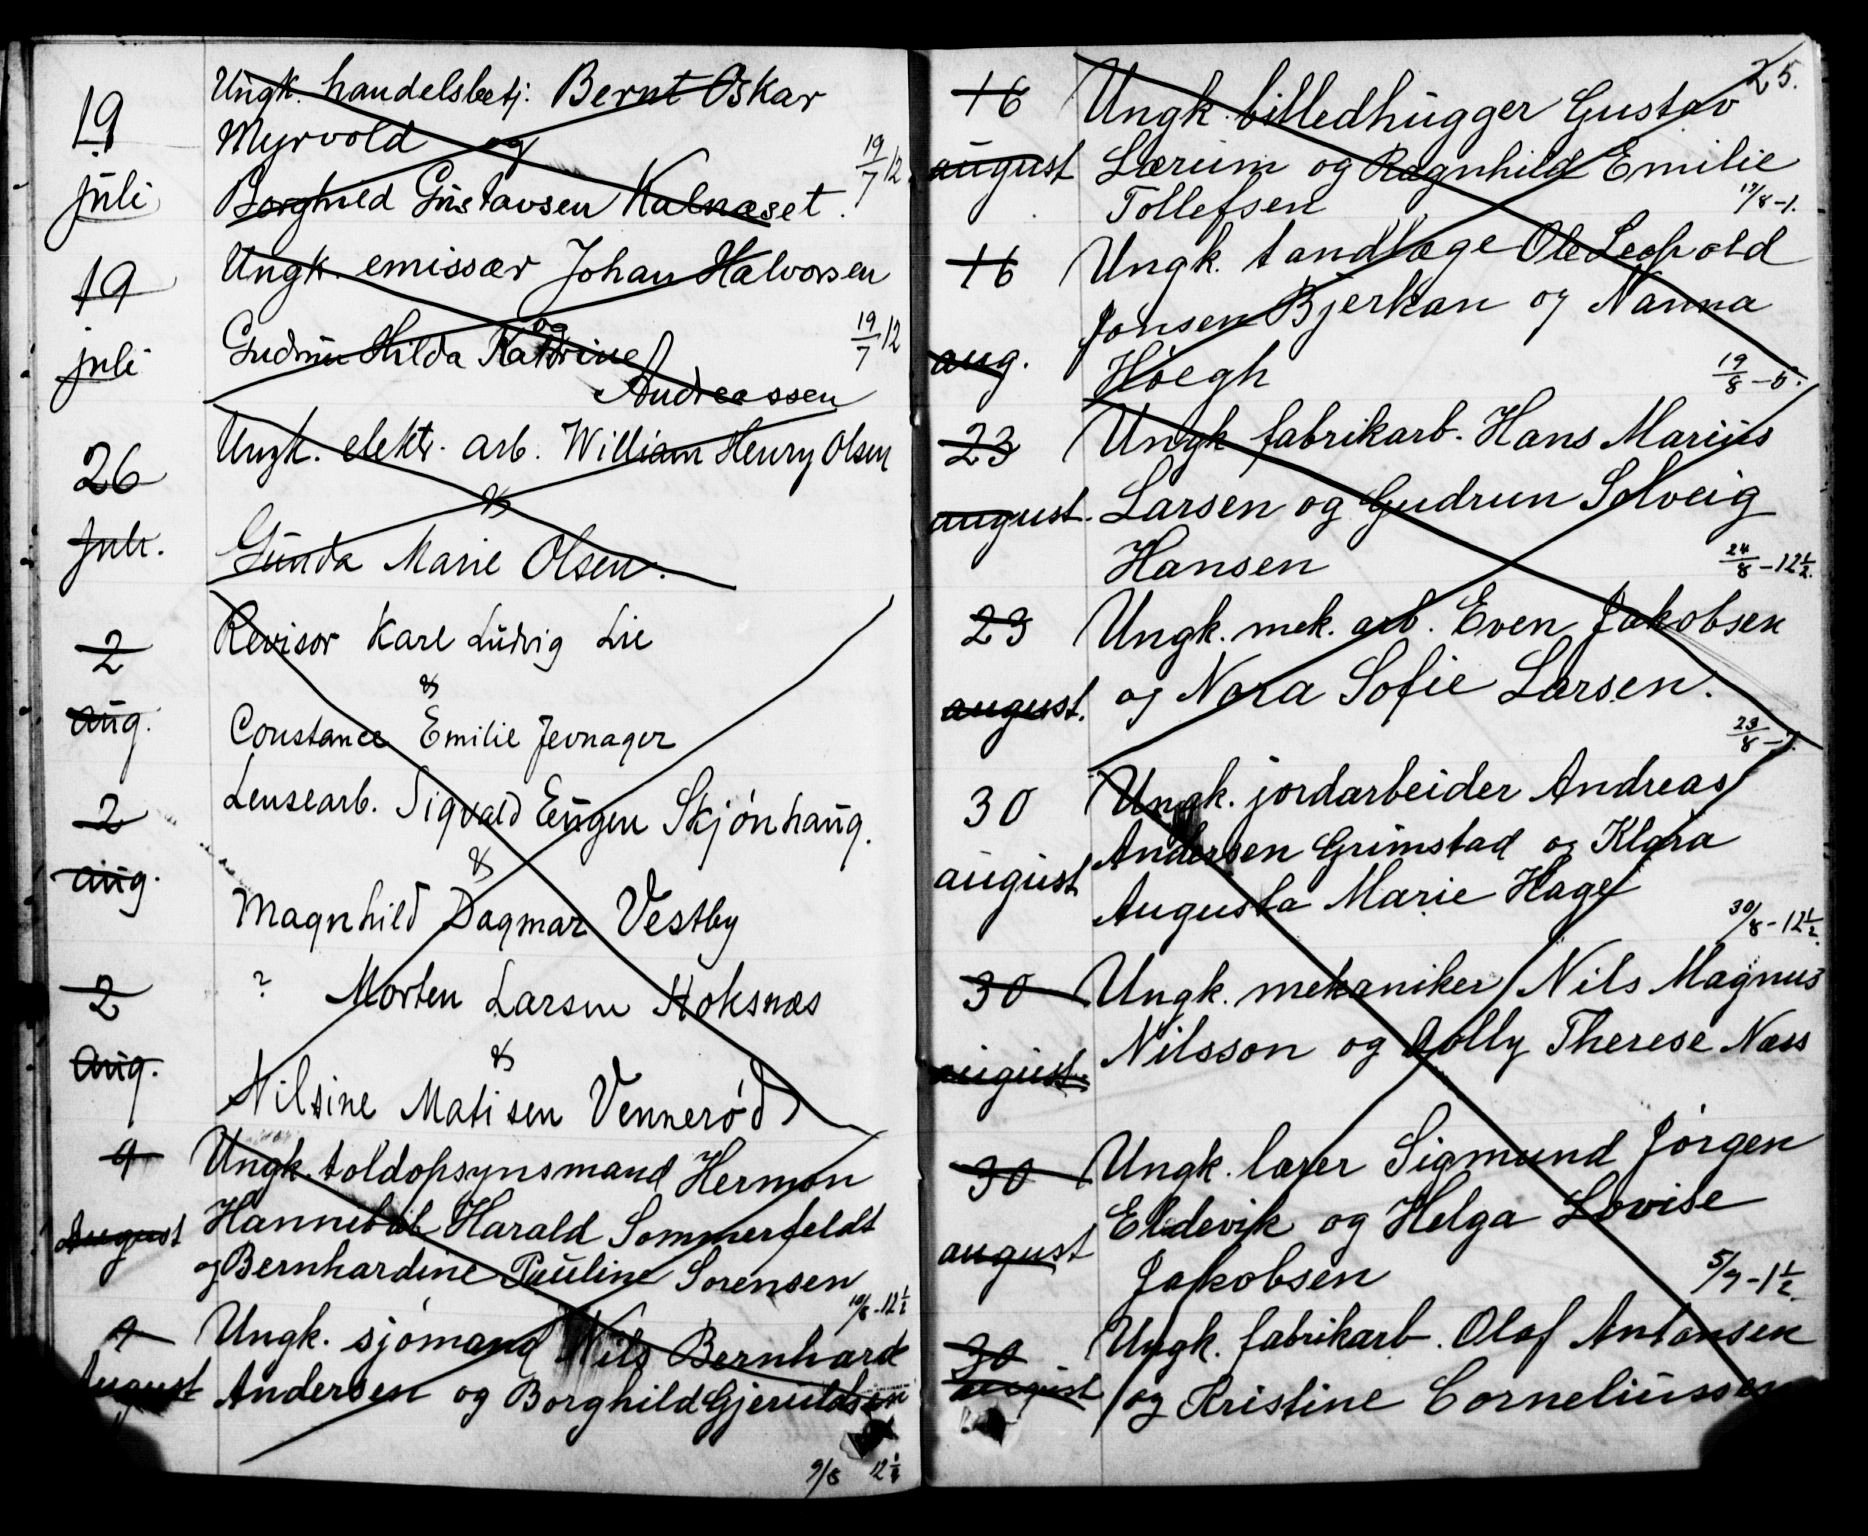 19 juli
Ungk. handelsbetj. Bernt Oskar
Myrvold og
Borghild Gustavsen Kalnæset. 19/7 12
19 juli
Ungk. emissær Johan Halvorsen
og
Gudrun Hilda Katrine 19/7 12
Andreassen
26 juli.
Ungk. elektr. arb. William Henry Olsen
&
Gunda Marie Olsen.
2 aug.
Revisor Karl Ludvig Lie
&
Constance Emilie Jevnager
2 aug.
Lensearb. Sigvald Eugen Skjønhaug.
&
Magnhild Dagmar Vestby
2 aug.
? Morten Larsen Hoksnæs
&
Nilsine Matisen Vennerød
9 August
Ungk. toldopsynsmand Herman
Hannibal Harald Sommerfeldt
og Bernhardine Pauline Sorensen
10/8-12½
9 August
Ungk. sjømand Nils Bernhard
Andersen og Borghild Gjeruldsen
9/8 12½
25.
16 august
Ungk. billedhugger Gustav
Lærum og Ragnhild Emilie
Tollefsen 17/8-1.
16 aug.
Ungk. tandlæge Ole Leopold
Jonsen Bjerkan og Nanna
Høegh 19/8-5.
23 august.
Ungk fabrikarb. Hans Marius
Larsen og Gudrun Solveig
Hansen 24/8-12½.
23 august.
Ungk. mek. arb. Even Jakobsen
og Nora Sofie Larsen.
23/8-1.
30 august
Ungk. jordarbeider Andreas
Andersen Grimstad og Klara
Augusta Marie Hage
30/8-12½.
30 august.
Ungk. mekaniker Nils Magnus
Nilsson og Aolly Therese Næss
30 august
Ungk. lærer Sigmund Jørgen
Eldevik og Helga Lovise
Jakobsen 5/9-1½.
30 august
Ungk. fabrikarb. Olaf Antonsen
og Kristine Corneliussen